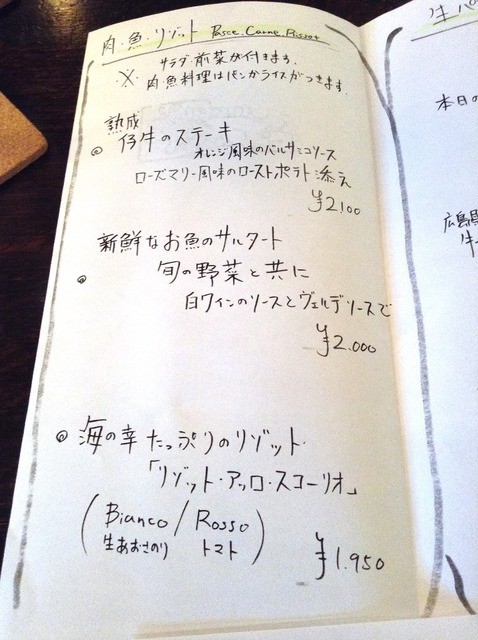 肉・魚・リゾット Pesce.Carne.Risot
サラダ・前菜が付きます。
※ 肉魚料理はパンかライスがつきます。
熟成
仔牛のステーキ
オレンジ風味のバルサミコソース
ローズマリー風味のローストポテト添え
¥2100
新鮮なお魚のサルタート
旬の野菜と共に
白ワインのソースとヴェルデソースで
¥2.000
海の幸たっぷりのリゾット
「リゾット・アッロ・スコーリオ」
(Bianco/Rosso)
生あおさのり トマト
¥1.950
生ハ
本日の
広島県
牛